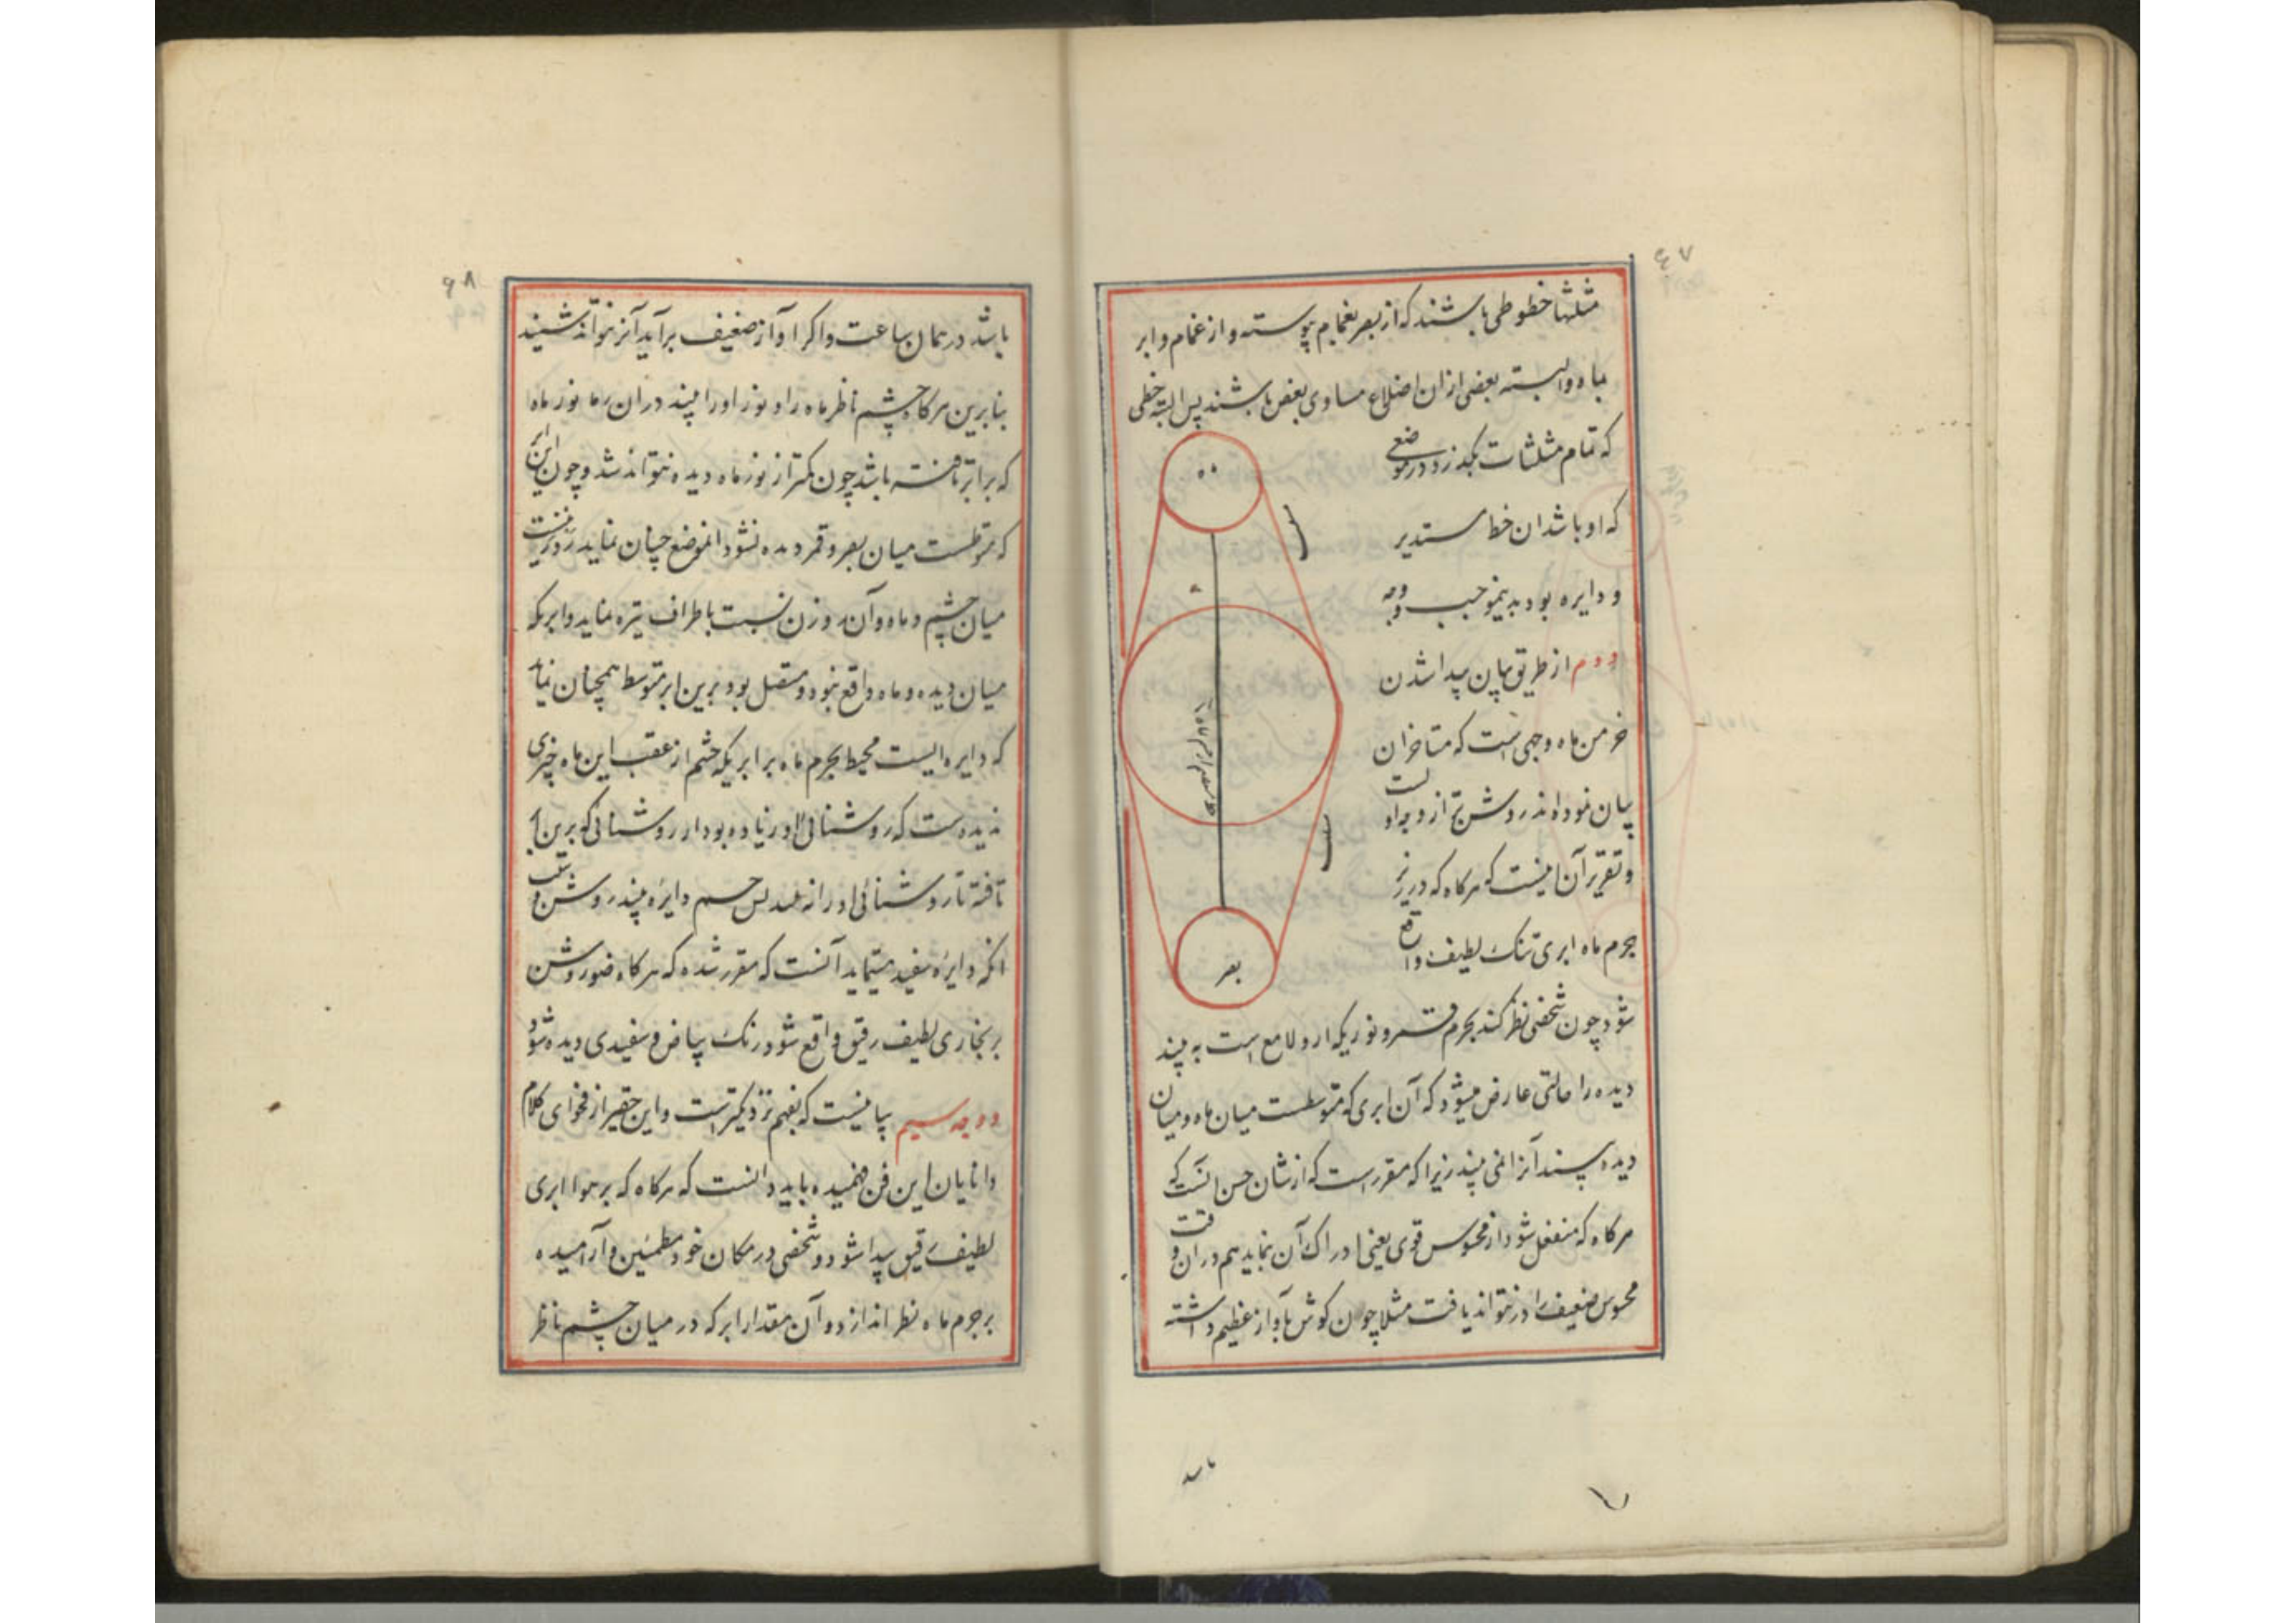 ۶۷
مثلثها خطوطی باشند که از بصر بغمام پیوسته و از غمام و ابر
بماه وابسته بعضی ازان اضلاع مساوی بعض باشند پس البته خطی
که تمام مثلثات بگذرد در موضعی
که او باشد ان خط مستدیر
و دایره بود بدینموجب وجه
دوم از طریق بیان پیدا شدن
خرمن ماه وجهی است که متاخران
بیان نموده اند روشن تر از وجه اولست
و تقریر آن اینست که هرکاه که در زیر
جرم ماه ابری تنک لطیف واقع
شود چون شخصی نظر کند بجرم قمر و نوریکه ازو لامع است به بیند
دیده را حالتی عارض میشود که آن ابری که متوسطست میان ماه و میان
دیده بیننده آنرا نمی بیند زیرا که مقرر است که از شان حس آنست که
هرکاه که منفعل شود از محسوس قوی یعنی ادراک آن نماید هم دران وقت
محسوس ضعیف را در نتواند یافت مثلا چون کوش بآواز عظیم داشته
ماه
بصر
باشد
۶۸
باشد در همان ساعت و اکر آواز ضعیف برآید آنرا نتواند شنید
بنابرین هرکاه چشم ناظر ماه را و نور او را بیند دران زمان نور ماه
که بر ابر تافته باشد چون کمتر از نور ماه دیده نتواند شد و چون این ابر
که متوسطست میان بصر و قمر دیده نشود انموضع چنان نماید که روزنیست
میان چشم و ماه و آن روزن نسبت باطراف تیره نماید و ابریکه
میان دیده و ماه واقع نبود و متصل بود برین ابر متوسط همچنان نماید
که دایره ایست محیط بجرم ماه برابریکه چشم از عقب این ماه چیزی
ندیده است که روشنائی او زیاده بود از روشنائی که برین ابر
تافته تا روشنائی او را نه بیند پس جسم دایره بیند روشن و سبب
انکه دایره سفید مینماید آنست که مقرر شده که هرکاه ضوء روشن
بر بخاری لطیف رقیق واقع شود رنک بیاض و سفیدی دیده شود
و وجه سیم بیانیست که بفهم نزدیکتر است و این حقیر از فحوای کلام
دانایان این فن فهمیده باید دانست که هرکاه که بر هوا ابری
لطیف رقیق پیدا شود و شخصی در مکان خود مطمئین و آرامیده
بر جرم ماه نظر اندازد و آن مقدار ابر که در میان چشم ناظر